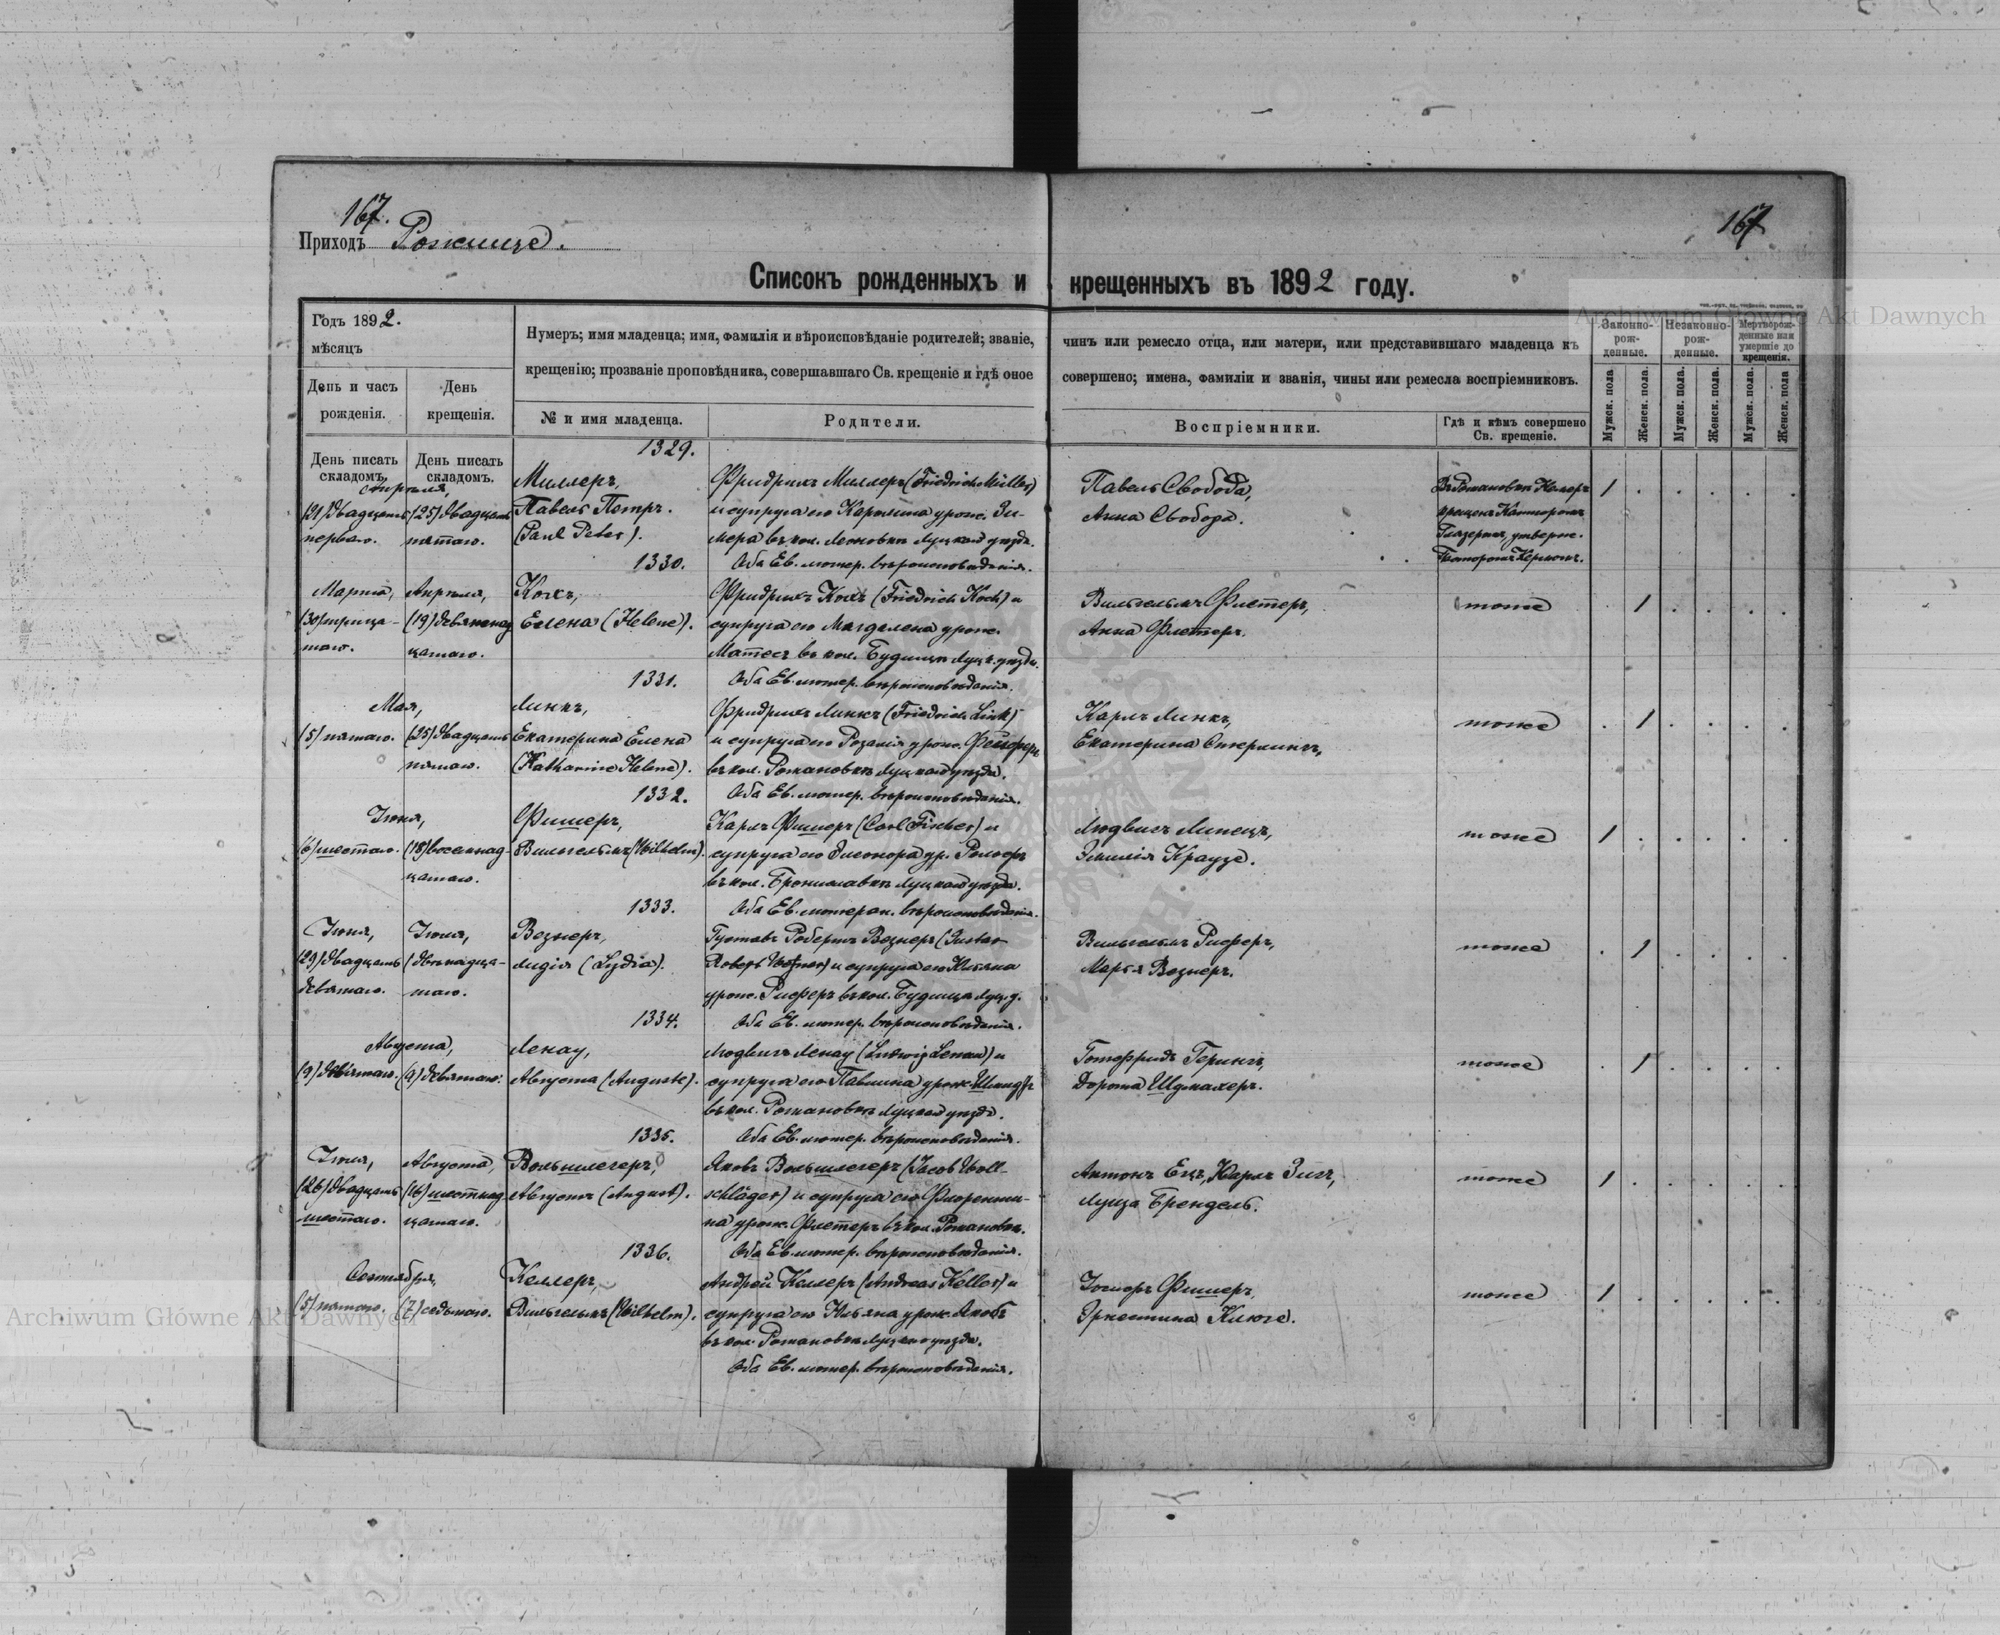 167.
Приходъ Рожище.
167
Списокъ рожденныхъ и крещенныхъ въ 1892 году.
Годъ 1892.
мѣсяцъ
День и часъ рожденія.
День крещенія.
Нумеръ; имя младенца; имя, фамилія и вѣроисповѣданіе родителей; званіе, чинъ или ремесло отца, или матери, или представившаго младенца къ
крещенію; прозваніе проповѣдника, совершавшаго Св. крещеніе и гдѣ оное совершено; имена, фамиліи и званія, чины или ремесла воспріемниковъ.
№ и имя младенца.
Родители.
Воспріемники.
Гдѣ и кѣмъ совершено Св. крещеніе.
Законно-рож-денные.
Незаконно-рож-денные.
Мертворож-денные или умершіе до крещенія.
Мужск. пола
Женск. пола.
Мужск. пола.
Женск. пола.
Мужск. пола.
Женск. пола
День писать складомъ.
День писать складомъ.
1329.
Апрѣля,
(21) двадцать перваго.
(25) двадцать пятаго.
Миллеръ,
Павелъ Петръ.
(Paul Peter).
Фридрихъ Миллеръ (Friedrich Müller)
и супруга его Каролина урож.
въ кол. Леоновкѣ Луцкаго уѣзда.
Оба Ев. лютер. вѣроисповѣданія.
Павелъ Свобода,
Анна Свобода.
Въ Романовкѣ
крещенъ Канторомъ
утвержд.
Пасторомъ Кермомъ.
1
1330.
Марта,
(30) тридцатаго.
Апрѣля,
(19) девятнадцатаго.
Кохъ,
Елена (Helene).
Фридрихъ Кохъ (Friedrich Koch) и
супруга его Магдалена урож.
Матесъ въ кол. Будищи Луцк. уѣзда.
Оба Ев. лютер. вѣроисповѣданія.
Вильгельмъ Флетеръ,
Анна Флетеръ.
тоже
1
1331.
Мая,
(5) пятаго.
(25) двадцать пятаго.
Линкъ,
Екатерина Елена
(Katharine Helene).
Фридрихъ Линкъ (Friedrich Link)
и супруга его Розалія урож. Фейферъ
въ кол. Романовкѣ Луцкаго уѣзда.
Оба Ев. лютер. вѣроисповѣданія.
Карлъ Линкъ,
Екатерина Стерлингъ,
тоже
1
1332.
Іюня,
(6) шестаго.
(18) восемнадцатаго.
Фишеръ,
Вильгельмъ (Wilhelm).
Карлъ Фишеръ (Carl Fischer) и
супруга его Элеонора ур. Рельфъ
въ кол. Брониславкѣ Луцкаго уѣзда.
Оба Ев. лютеран. вѣроисповѣданія.
Людвигъ Липецъ,
Эмилія Краузе.
тоже
1
1333.
Іюня,
(29) двадцать девятаго.
Іюля,
( двѣнадцатаго.
Вегнеръ,
Лидія (Lydia).
Густавъ Робертъ Вегнеръ (Gustav
Robert Wegner) и супруга его Юліана
урож. Рифферъ въ кол. Будищи Луц. у.
Оба Ев. лютер. вѣроисповѣданія.
Вильгельмъ Рифферъ,
Марья Вегнеръ.
тоже
1
1334.
Августа,
(9) девятаго.
(9) девятаго.
Ленау,
Августа (Auguste).
Людвигъ Ленау (Ludwig Lenau) и
супруга его Павлина урож. Шмидтъ
въ кол. Романовкѣ Луцкаго уѣзда.
Оба Ев. лютер. вѣроисповѣданія.
Готфридъ Герингъ,
Дорота Шумахеръ.
тоже
1
1335.
Іюля,
(26) двадцать шестаго.
Августа,
(16) шестнадцатаго.
Вольшлегеръ,
Августъ (August).
Яковъ Вольшлегеръ (Jacob Woll-
schläger) и супруга его Флоренти-
на урож. Флетеръ въ кол. Романовкѣ.
Оба Ев. лютер. вѣроисповѣданія.
Антонъ Ецъ, Карлъ Зигъ,
Луиза Брендель.
тоже
1
1336.
Сентября,
(5) пятаго.
(7) седьмаго.
Келлеръ,
Вильгельмъ (Wilhelm).
Андрей Келлеръ (Andreas Keller) и
супруга его Юльяна урож. Якобъ
въ кол. Романовкѣ Луцкаго уѣзда.
Оба Ев. лютер. вѣроисповѣданія.
Іосифъ Фишеръ,
Эрнестина Клюге.
тоже
1
Archiwum Główne Akt Dawnych
Archiwum Główne Akt Dawnych